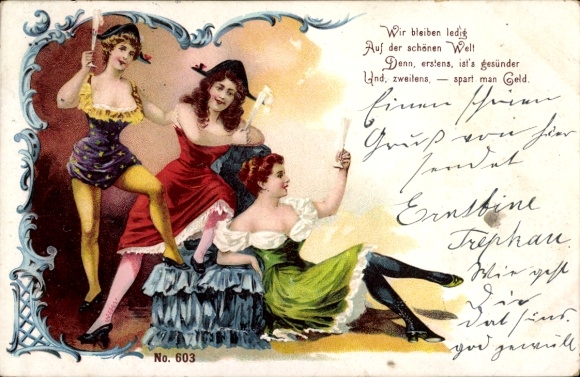 Wir bleiben ledig
Auf der schönen Welt
Denn, erstens, ist's gesünder
Und, zweitens, — spart man Geld.
Einen schönen
Gruß von hier
sendet
Ernstine
Trepkau.
Wie geht
Dir
No. 603